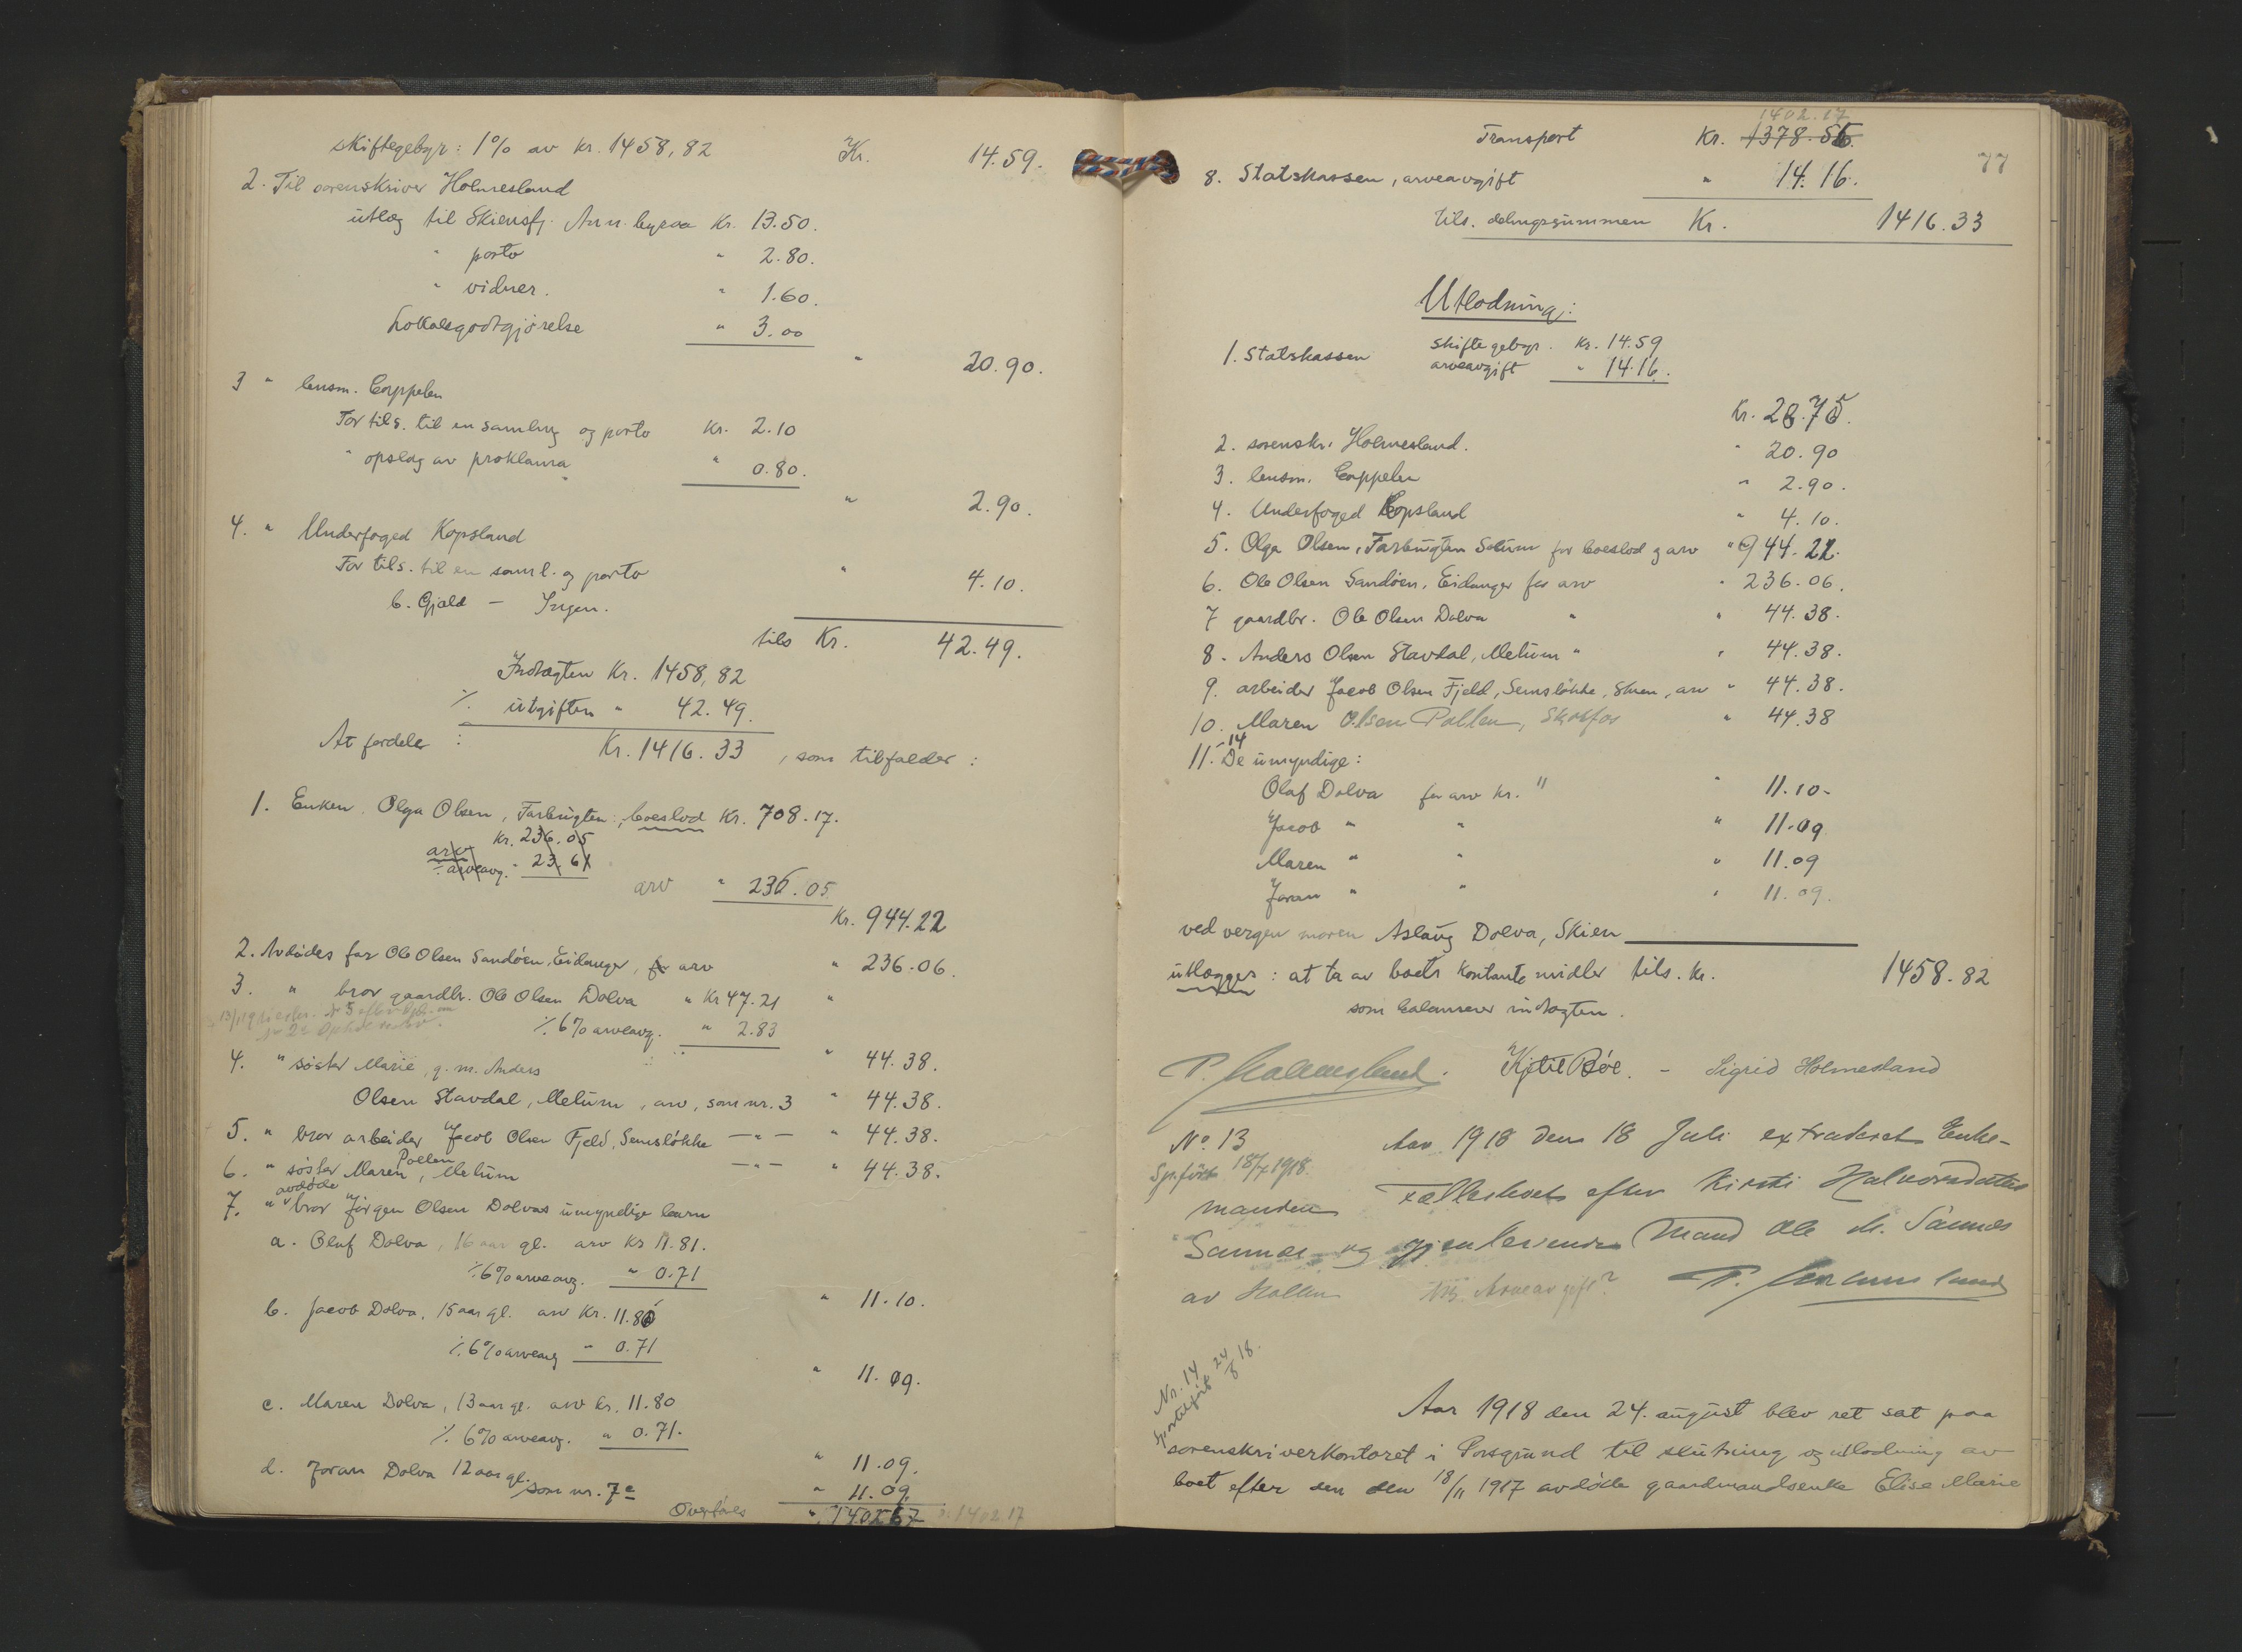 skiftegebyr: 1% av kr. 1458,82 Kr. 14.59.
2. Til sorenskriver Holmesland
utlæg til Skiensfj. Ann. byraa Kr. 13.50.
" porto " 2.80.
" vidner. " 1.60.
Lokalegodtgjörelse " 3.00
" 20.90.
3 " lensm. Cappelen
For tils. til en samling og porto Kr. 2.10
" opslag av proklama " 0.80.
" 2.90.
4. " Underfoged Kopsland
For tils. til en saml. og porto " 4.10.
b. Gjæld — Ingen.
tils Kr. 42.49.
Indtægten Kr. 1458,82
÷ utgiften " 42.49.
At fordele : Kr. 1416.33, som tilfalder :
1. Enken Olga Olsen, Farbugten, boeslod Kr. 708.17.
arv Kr. 236.05
÷ arveavg. " 23.61
arv " 236.05
Kr. 944.22
2. Avdødes far Ole Olsen Sandöen, Eidanger, for arv " 236.06.
3. " bror gaardbr. Ole Olsen Dolva " Kr 47.21 "
÷ 6% arveavg. " 2.83
" 44.38.
4. " söster Marie, g. m. Anders
Olsen Stavdal, Melum, arv, som nr. 3 " 44.38.
5. " bror arbeider Jacob Olsen Fjeld, Semslökke —"— " 44.38.
6. " söster Maren Pollen, Melum —"— " 44.38.
7. " avdöde bror Jörgen Olsen Dolvas umyndige barn
a. Oluf Dolva, 16 aar gl. arv Kr 11.81.
÷ 6% arveavg. " 0.71
" 11.10.
b. Jacob Dolva, 15 aar gl. arv Kr. 11.80
÷ 6% arveavg " 0.71
" 11.09.
c. Maren Dolva, 13 aar gl. arv kr. 11.80
÷ 6% arveavg. " 0.71.
" 11.09.
d. Joran Dolva 12 aar gl. som nr. 7c " 11.09.
Overföres " 1402.17 1402.17
77
1402.17
Transport Kr. 1378.56.
8. Statskassen, arveavgift " 14.16.
tils. delingssummen Kr. 1416.33
Utlodning:
1. Statskassen skiftegebyr. Kr. 14.59
arveavgift " 14.16.
Kr. 28.75.
2. sorenskr. Holmesland. " 20.90
3. lensm. Cappelen " 2.90.
4. Underfoged Kopsland " 4.10.
5. Olga Olsen, Farbugten Solum for boeslod og arv " 944.22.
6. Ole Olsen Sandöen, Eidanger for arv " 236.06.
7 gaardbr. Ole Olsen Dolva " " 44.38.
8. Anders Olsen Stavdal, Melum " " 44.38.
9. arbeider Jacob Olsen Fjeld, Semslökke, Skien, arv " 44.38.
10. Maren Olsen Pollen, Skotfos " 44.38
11.-14 De umyndige:
Olaf Dolva for arv kr. " " 11.10-
Jacob " " " 11.09
Maren " " " 11.09
Joran " " " 11.09.
ved vergen moren Aslaug Dolva, Skien
utlægges : at ta av boets kontante midler tils. kr. 1458.82
som balanserer indtægten.
P. Holmesland. Kjetil Böe. - Sigrid Holmesland
No. 13 Aar 1918 den 18 Juli extraderet Enke-
Sp.fört 18/7 1918.
manden Fællesboet efter Kirsti Halvorsdatter
Sannes og gjenlevende Mand Ole M. Sannes
av Hollen Arveavgift? P. Holmesland
Nr. 14
Sportelfört 24/8 18.
Aar 1918 den 24. august blev ret sat paa
sorenskriverkontoret i Porsgrund til slutning og utlodning av
boet efter den den 18/11 1917 avdöde gaardmandsenke Elise Marie